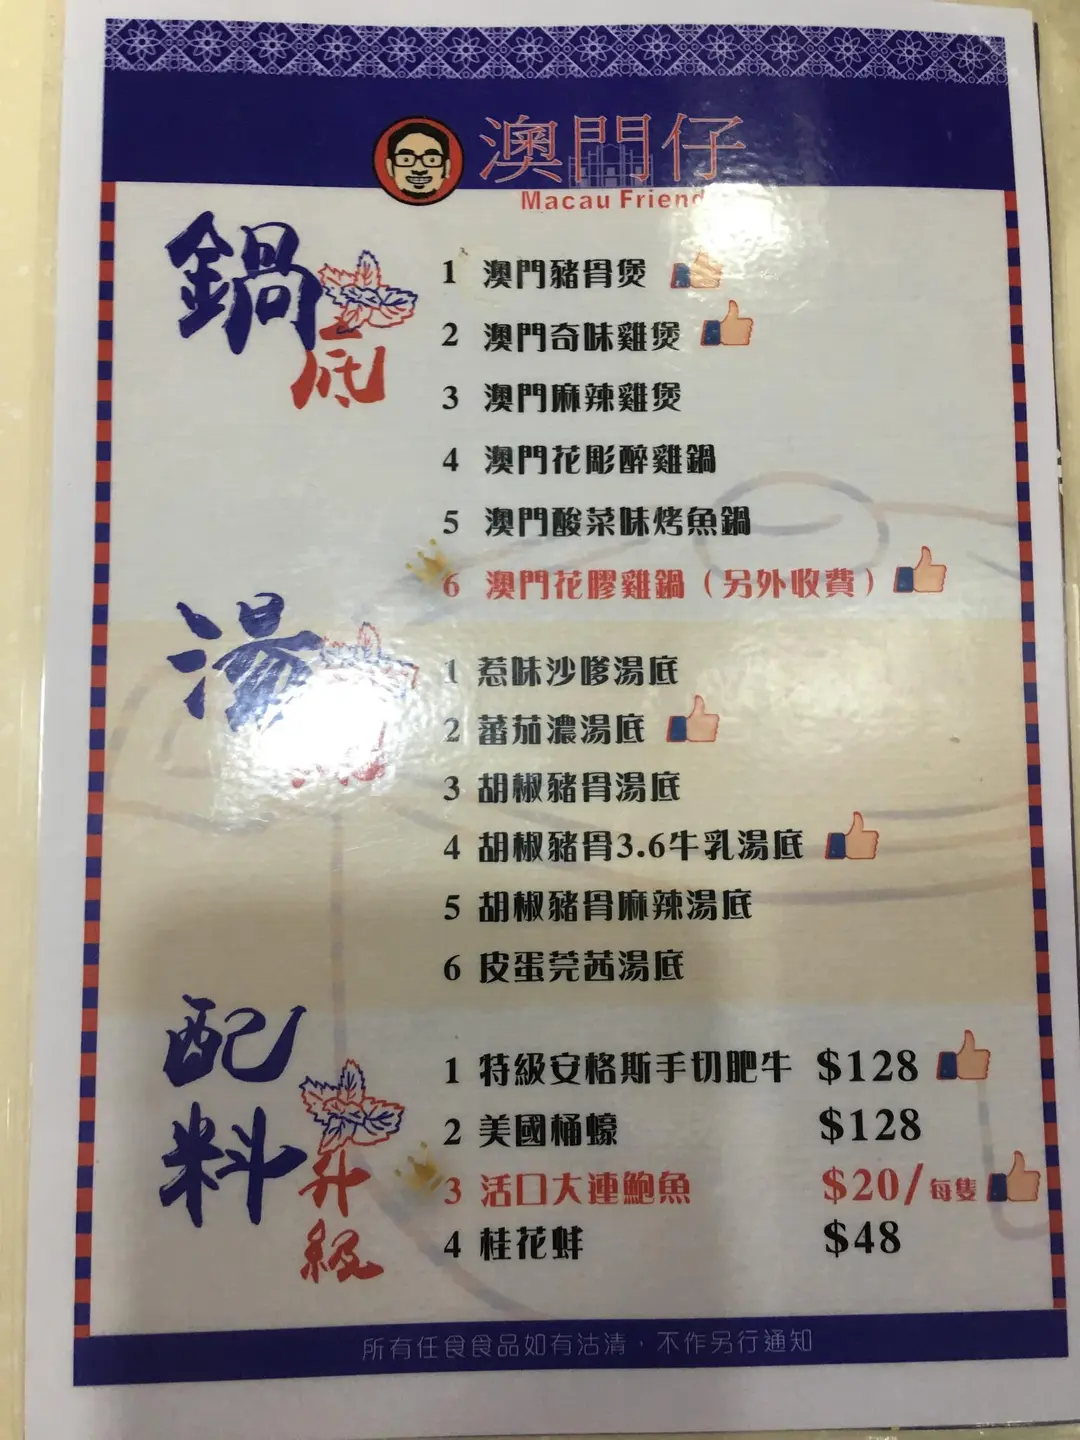 澳門仔
Macau Friend
鍋底
1 澳門豬骨煲
2 澳門奇味雞煲
3 澳門麻辣雞煲
4 澳門花彫醉雞鍋
5 澳門酸菜味烤魚鍋
6 澳門花膠雞鍋（另外收費）
湯
1 惹味沙嗲湯底
2 蕃茄濃湯底
3 胡椒豬骨湯底
4 胡椒豬骨3.6牛乳湯底
5 胡椒豬骨麻辣湯底
6 皮蛋芫茜湯底
配料升級
1 特級安格斯手切肥牛 $128
2 美國桶蠔 $128
3 活口大連鮑魚 $20/每隻
4 桂花蚌 $48
所有任食食品如有沽清，不作另行通知